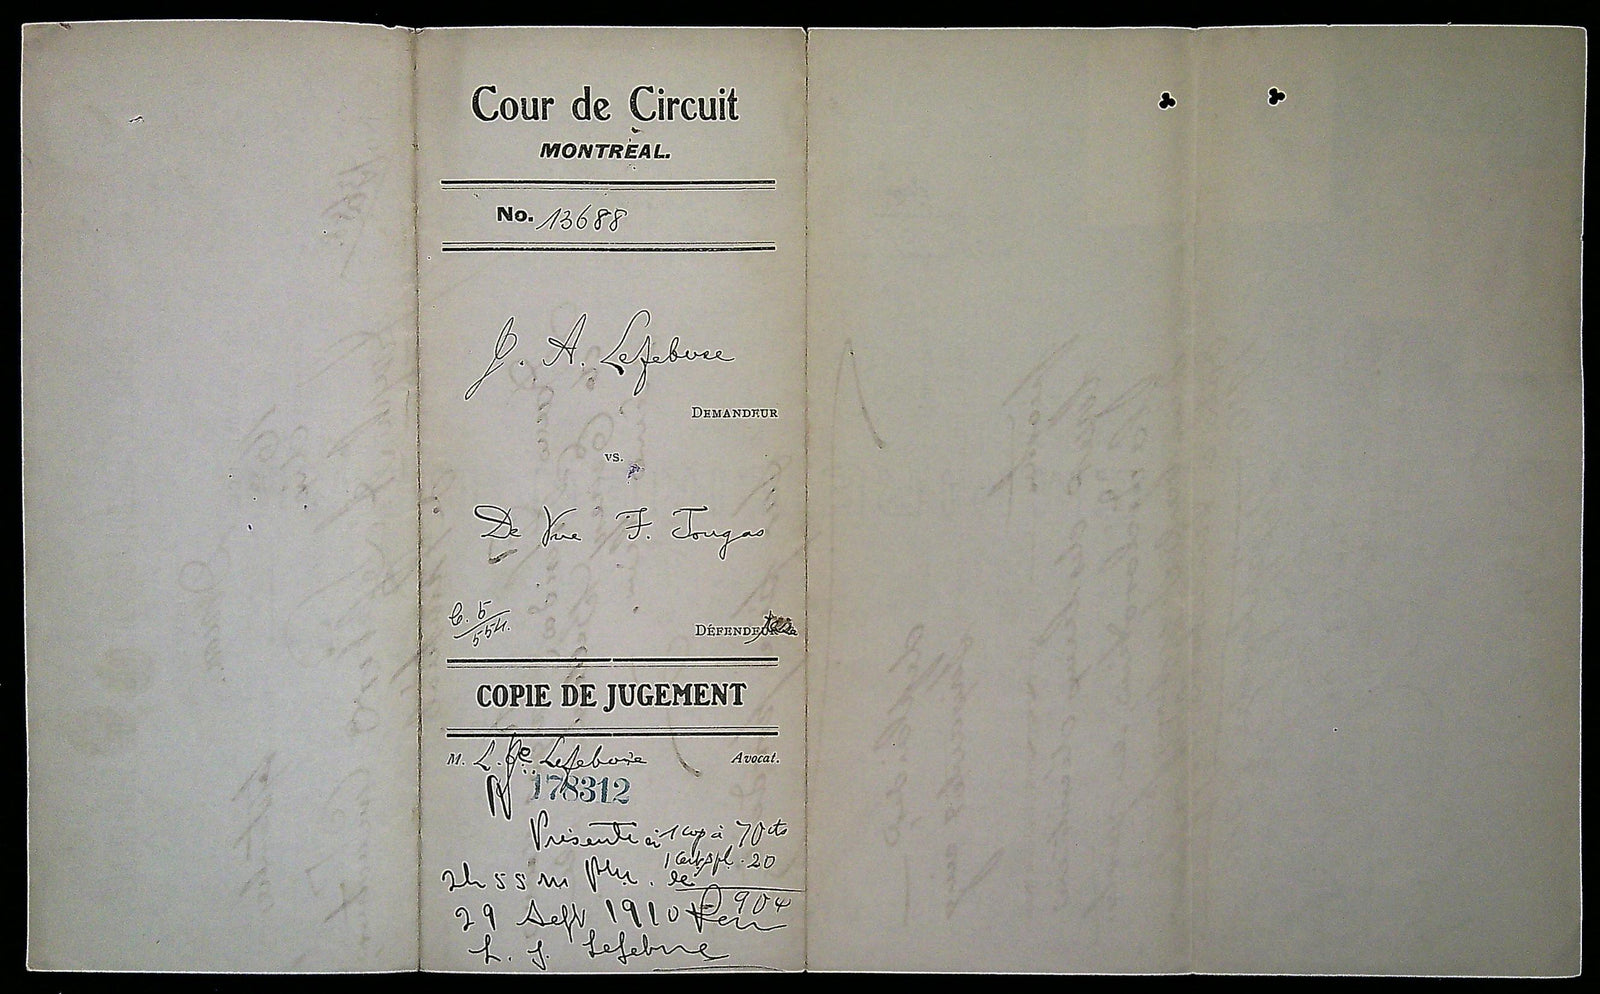 Cour de Circuit
MONTRÉAL.
No. 13688
J. A. Lefebvre
DEMANDEUR
vs.
De Vve F. Tougas
C. 5/554.
DÉFENDEUR
COPIE DE JUGEMENT
M. L. Je Lefebvre Avocat.
No 178312
Présenté à 1 cop à 70 cts
1 cert spl. 20
2h 55 m Pm. le
90
29 Sept 1910 Par
L. J. Lefebvre